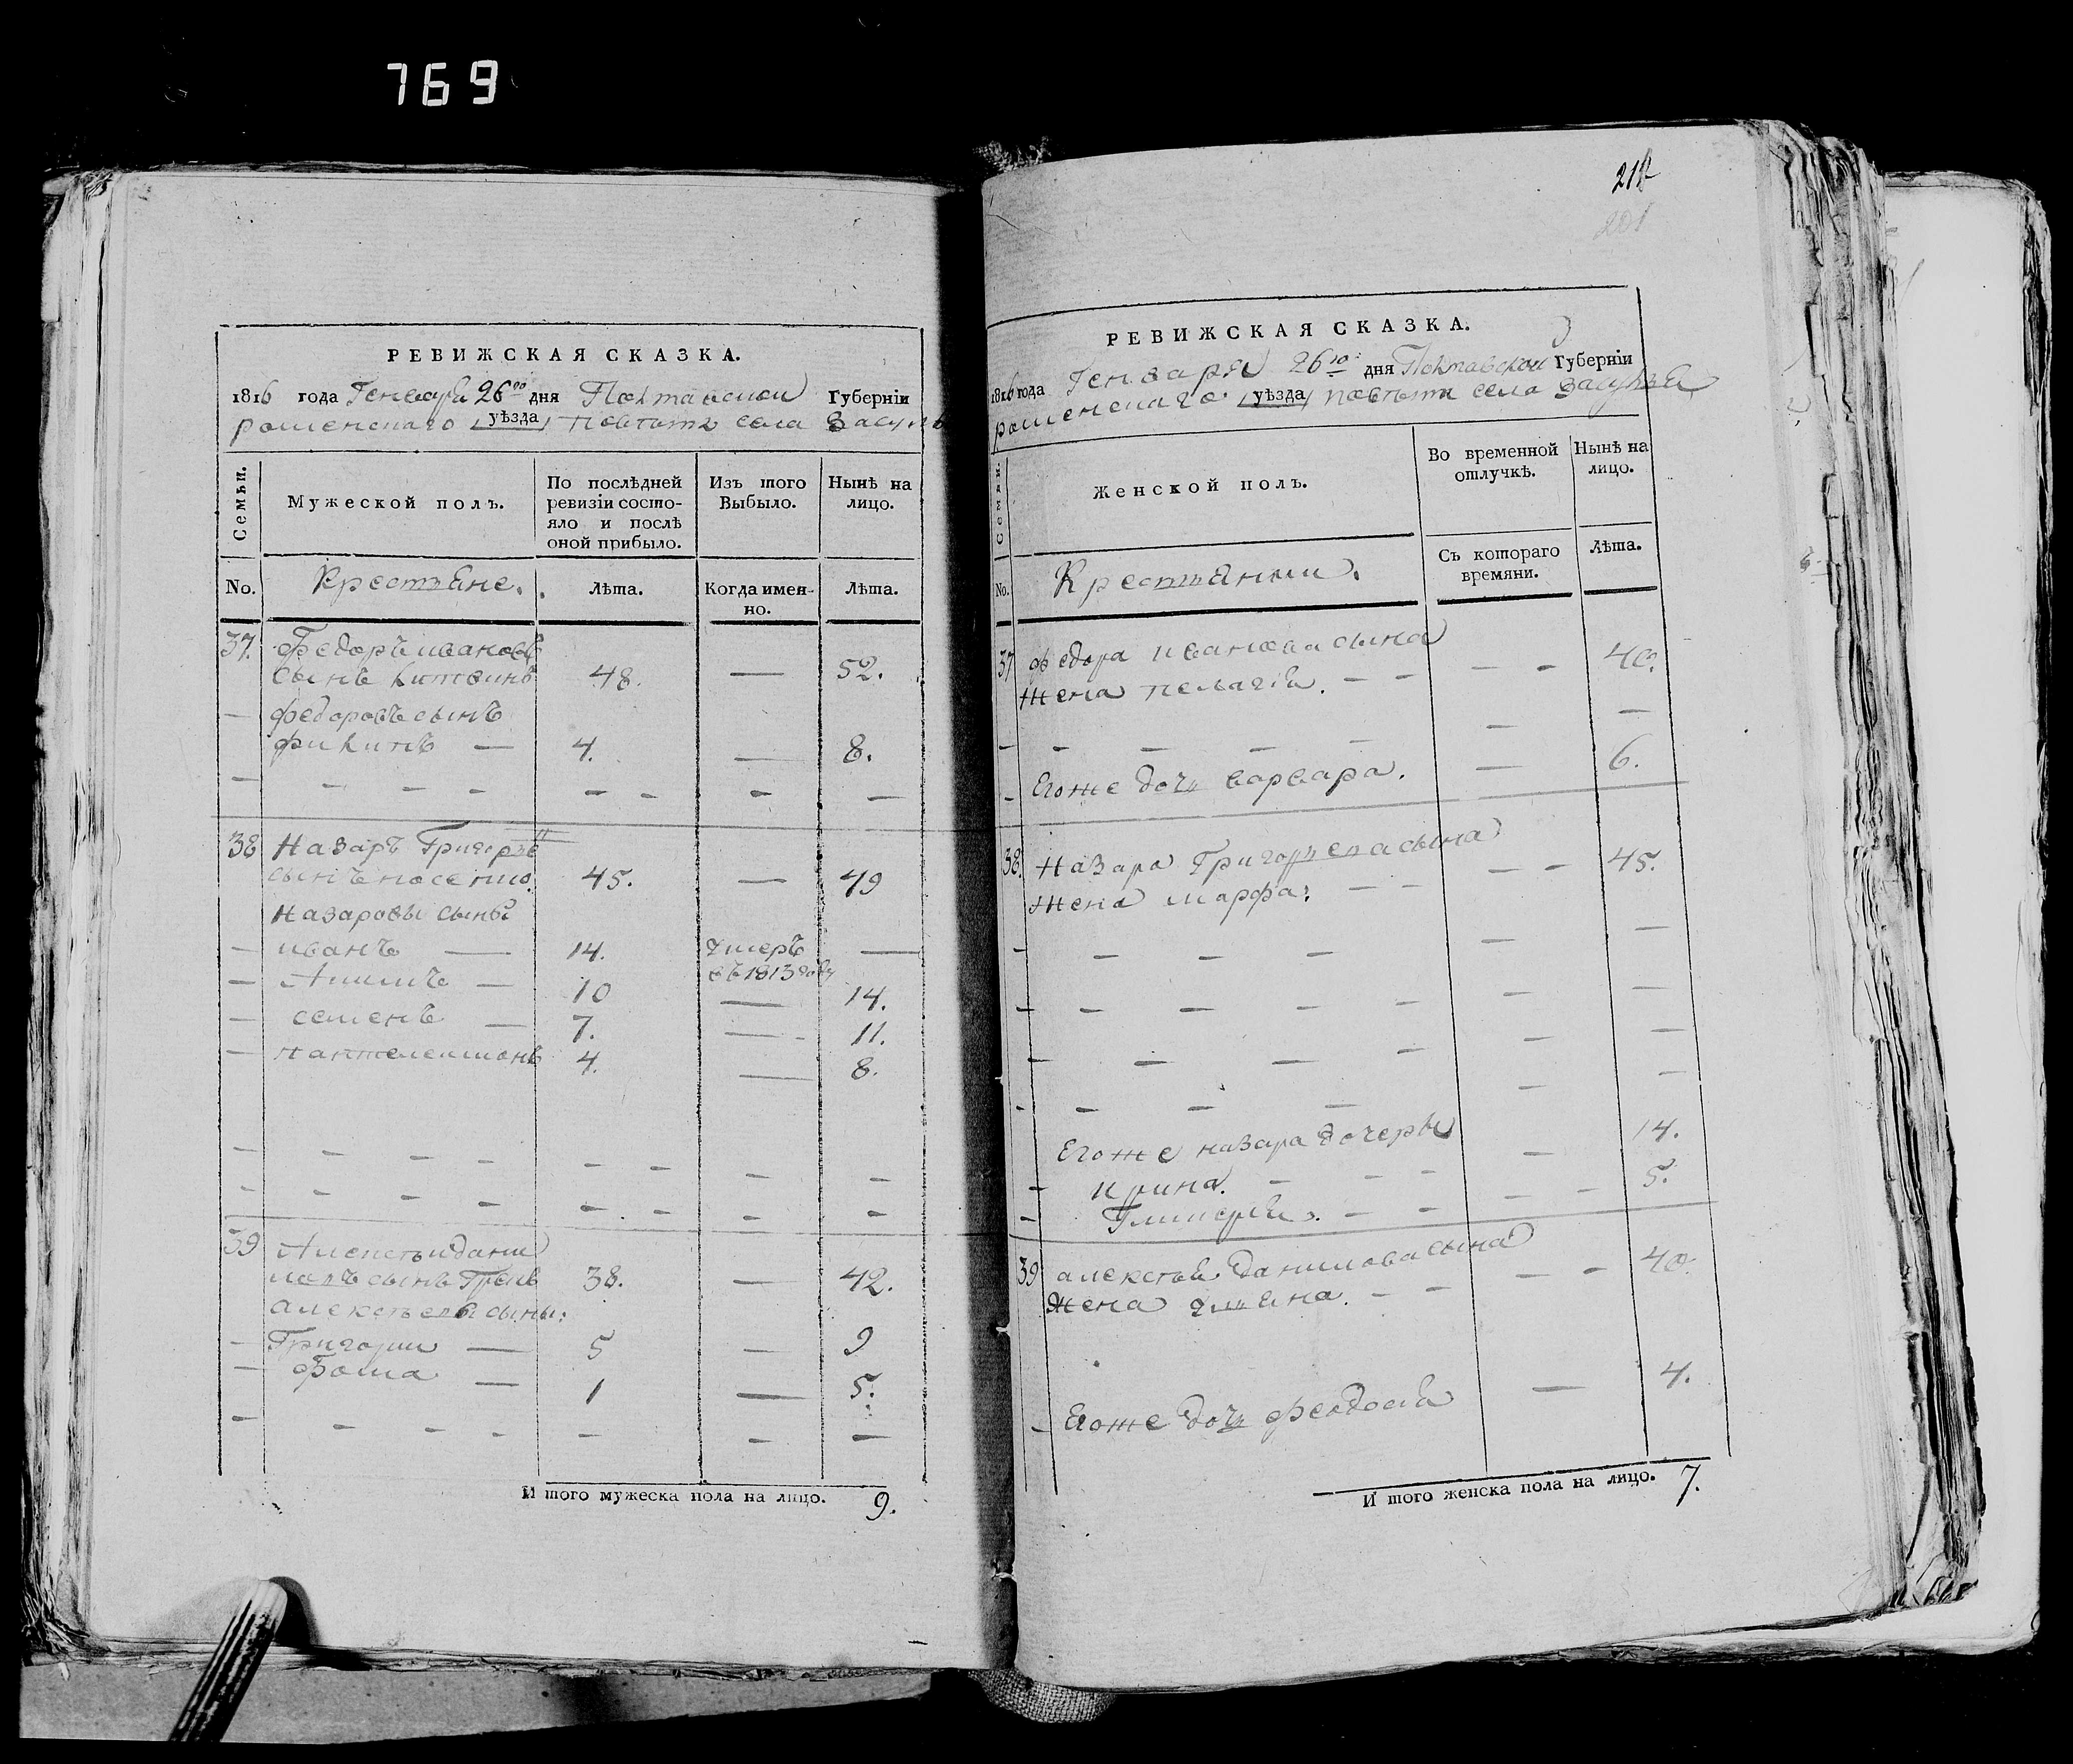 769
РЕВИЖСКАЯ СКАЗКА.
1816 года Генваря 26го дня Полтавской Губерніи
роменскаго уѣзда повѣта села Засуль
Семьи.
Мужеской полъ.
По послѣдней ревизіи состо-
яло и послѣ
оной прибыло.
Изъ того
Выбыло.
Нынѣ на
лицо.
No.
Крестьяне.
Лѣта.
Когда имен-
но.
Лѣта.
37. Федоръ ивановъ
сынъ Литвинъ 48. — 52.
— федоровъ сынъ
филипъ — 4. — 8.
38 Назаръ Григорьевъ
сынъ 45. — 49
Назаровы сыны:
— иванъ — 14. умеръ —
въ 1813 году
— Акимъ — 10 — 14.
— семенъ — 7. — 11.
— пантелеимонъ 4. — 8.
39 Алексѣй дани
ловъ сынъ 38. — 42.
алексѣевы сыны:
— Григорий — 5 — 9
— Фома — 1 — 5.
И того мужеска пола на лицо. 9.
212
201
РЕВИЖСКАЯ СКАЗКА.
1816 года Генваря 26го дня Полтавской Губерніи
роменскаго уѣзда повѣта села Засулья
Семьи.
Женской полъ.
Во временной
отлучкѣ.
Нынѣ на
лицо.
No.
Крестьянки.
Съ котораго
времяни.
Лѣта.
37 федора иванова сына
жена пелагія. — — — — 40.
— Егоже дочь варвара. — 6.
38. Назара Григорьева сына
жена марфа: — — — — 45.
Егоже назара дочери
— Ирина. — — — — 14.
— Гликерія. — — — — 5.
39 алексѣя Данилова сына
жена улияна. — — — — 40.
— Егоже дочь феодосія — 4.
И того женска пола на лицо. 7.